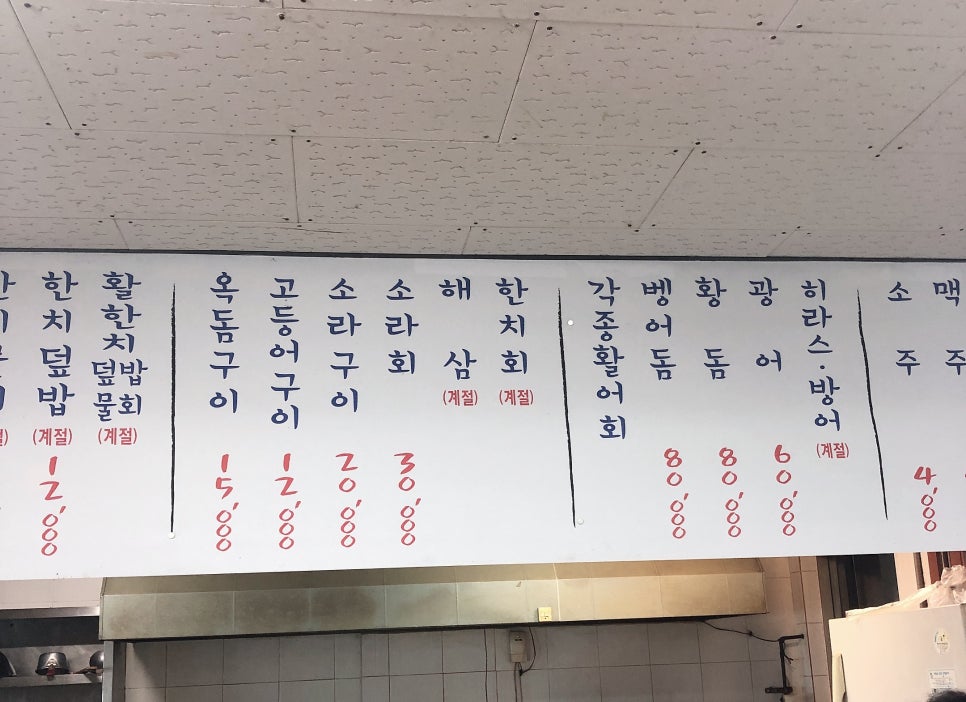 한치덮밥 (계절) 12,000
활한치덮밥물회 (계절)
옥돔구이 15,000
고등어구이 12,000
소라구이 20,000
소라회 30,000
해삼 (계절)
한치회 (계절)
각종활어회
벵어돔 80,000
황돔 80,000
광어 60,000
히라스·방어 (계절)
소주 4,000
맥주